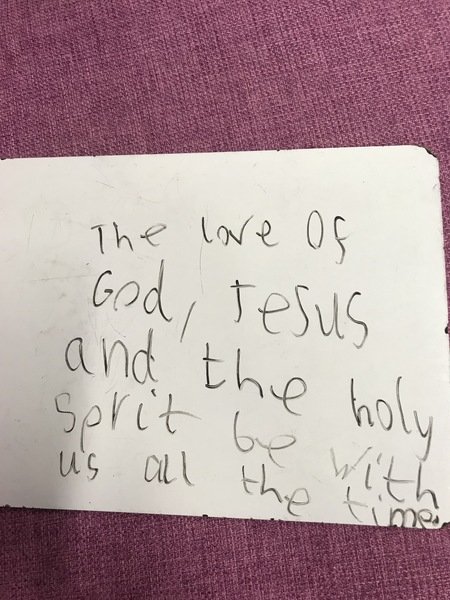 The love of
God, Jesus
and the holy
sprit be with
us all the time.